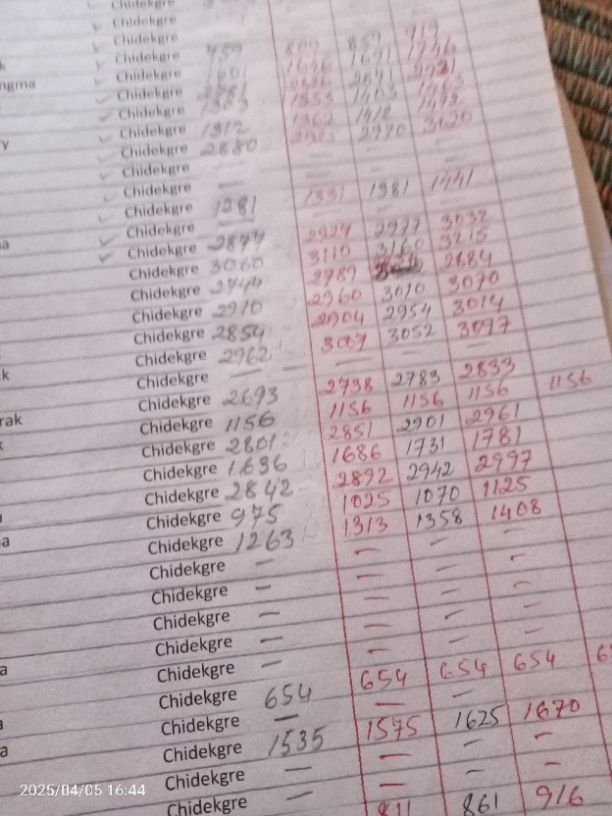 Chidekgre
Chidekgre
Chidekgre 919
Chidekgre 859
Chidekgre 1601 1646 1691 1746
ngma Chidekgre 2921
Chidekgre 1353 1403
Chidekgre 1312 1362 1412
y Chidekgre 2880 2970 3020
Chidekgre — — —
Chidekgre —
Chidekgre 1281 1331 1381 1441
Chidekgre —
a Chidekgre 2877 2927 2977 3032
Chidekgre 3060 3110 3160 3215
Chidekgre 2744 2789 2884
Chidekgre 2910 2960 3010 3070
Chidekgre 2854 2904 2954 3014
Chidekgre 2962 3007 3052 3097
k Chidekgre — — — —
Chidekgre 2693 2738 2783 2833
rak Chidekgre 1156 1156 1156 1156 1156
k Chidekgre 2801 2851 2901 2961
Chidekgre 1636 1686 1731 1781
Chidekgre 2842 2892 2942 2997
a Chidekgre 975 1025 1070 1125
a Chidekgre 1263 1313 1358 1408
Chidekgre — — — —
Chidekgre — — — —
Chidekgre — — — —
Chidekgre — — — —
a Chidekgre — — — —
Chidekgre 654 654 654 654
a Chidekgre — — —
a Chidekgre 1535 1575 1625 1670
Chidekgre — — — —
Chidekgre — — — —
Chidekgre 811 861 916
2025/04/05 16:44